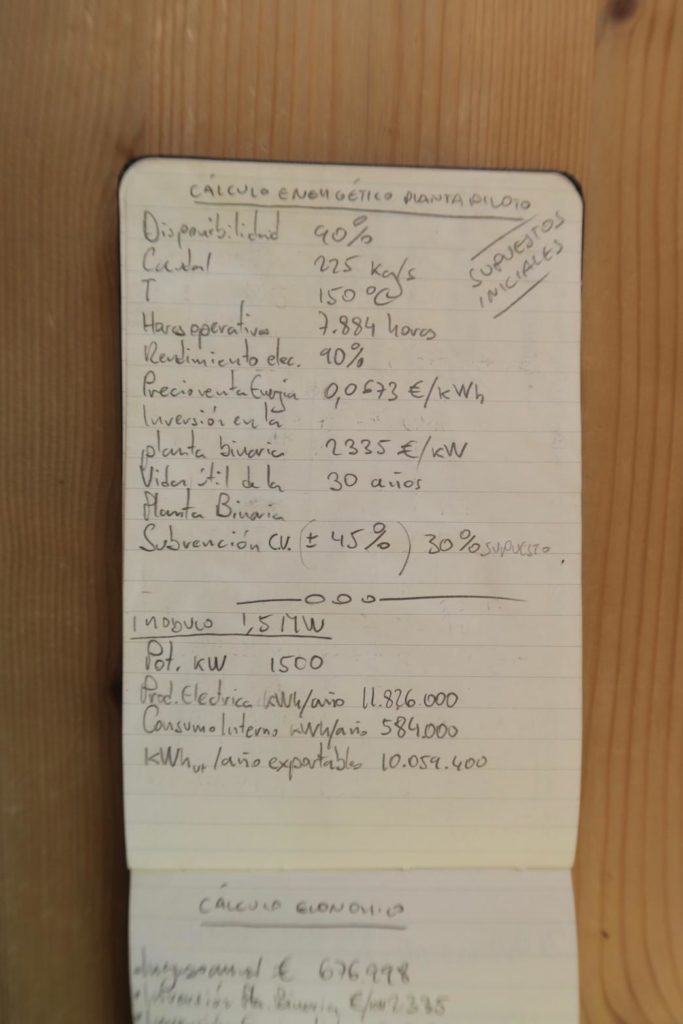 CÁLCULO ENERGÉTICO PLANTA PILOTO
SUPUESTOS
INICIALES
Disponibilidad 90%
Caudal 225 kg/s
T 150 ºC
Horas operativas 7.884 horas
Rendimiento elec. 90%
Precio venta Energía 0,0673 €/kWh
Inversión en la
planta binaria 2335 €/kW
Vida útil de la 30 años
Planta Binaria
Subvención C.V. (± 45%) 30% SUPUESTO.
1 MODULO 1,5 MW
Pot. KW 1500
Prod. Electrica kWh/año 11.826.000
Consumo Interno kWh/año 584.000
kWh /año exportables 10.059.400
CÁLCULO ECONOMICO
€ 676.998
Inversión Pta. Binaria 2335